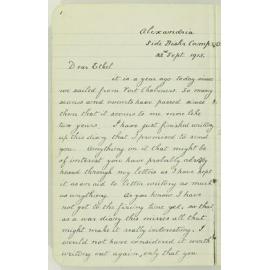 Alexandria
Sidi Bishr Camp
22nd Sept. 1915.
Dear Ethel
it is a year ago today since
we sailed from Port Chalmers. So many
scenes and events have passed since
then that it seems to me more like
two years. I have just finished writing
up this diary that I promised to send
you. Anything in it that might be
of interest you have probably already
heard through my letters as I have kept
it as an aid to letter writing as much
as anything. As you know I have
not got to the firing line yet, so that
as a war diary this misses all that
might make it really interesting. I
would not have considered it worth
writing out again, only that you